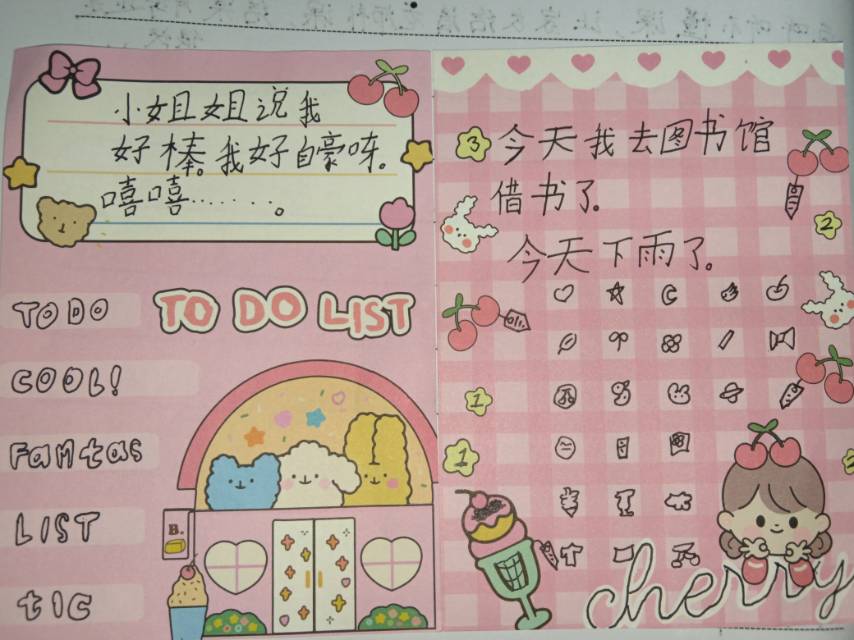 小姐姐说我
好棒。我好自豪哦。
嘻嘻.......。
TO DO
TO DO LIST
COOL!
Fantas
LIST
tic
B.
3
今天我去图书馆
借书了。
2
今天下雨了。
1
1
cherry